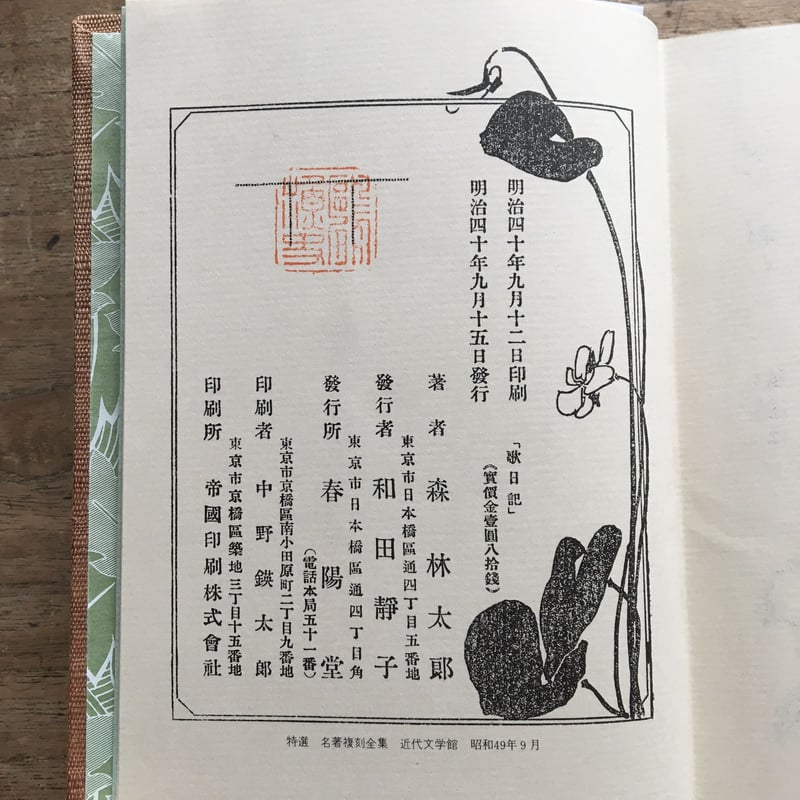 明治四十年九月十二日印刷
明治四十年九月十五日發行
「歌日記」
（實價金壹圓八拾錢）
著者 森林太郎
東京市日本橋區通四丁目五番地
發行者 和田靜子
東京市日本橋區通四丁目角
發行所 春陽堂
（電話本局五十一番）
東京市京橋區南小田原町二丁目九番地
印刷者 中野鍈太郎
東京市京橋區築地三丁目十五番地
印刷所 帝國印刷株式會社
特選 名著複刻全集 近代文学館 昭和49年9月